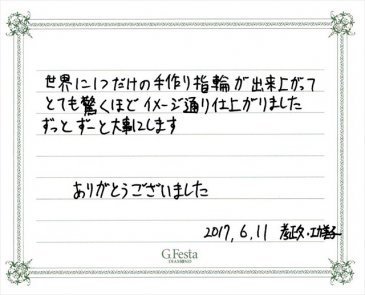 世界に1つだけの手作り指輪が出来上がって
とても驚くほどイメージ通り仕上がりました
ずっとずーと大事にします
ありがとうございました
2017.6.11
G.Festa
DIAMOND